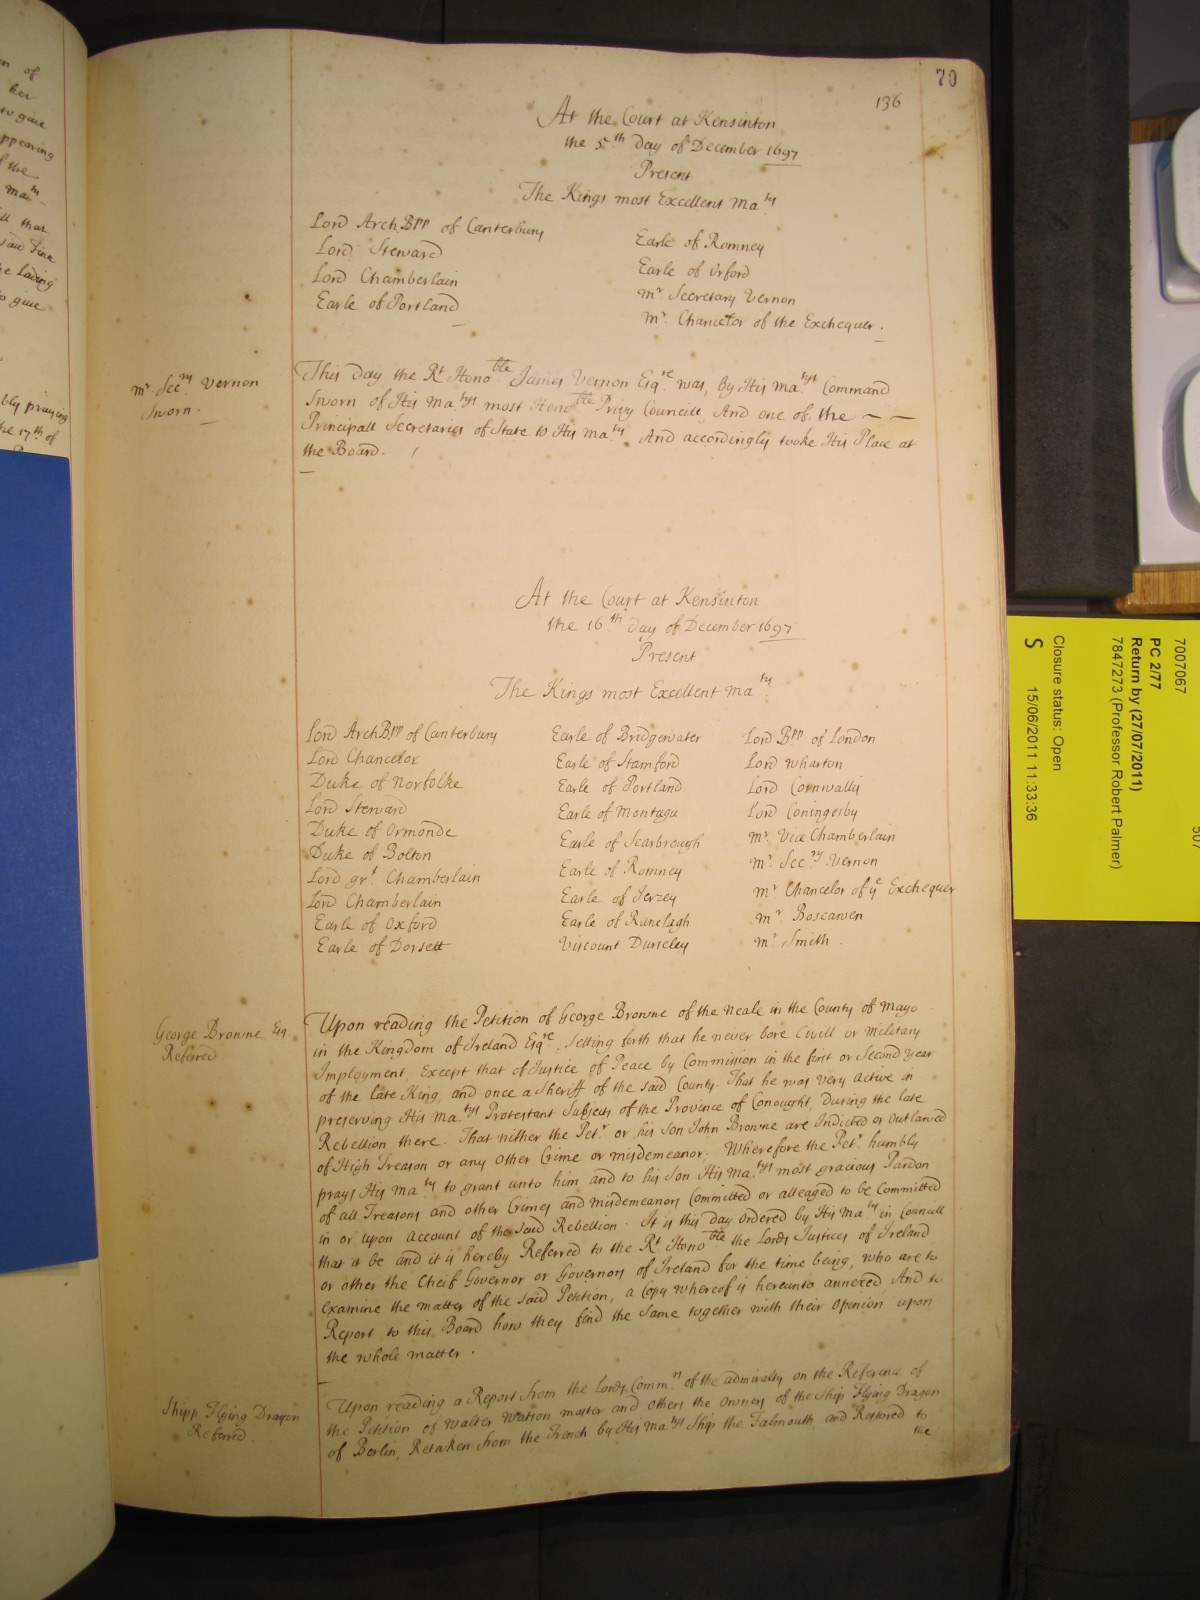 70
136
At the Court at Kensinton
the 5th Day of December 1697
Present
The Kings most Excellent Maty
Lord ArchBpp of Canterbury
Lord Steward
Lord Chamberlain
Earle of Portland
Earle of Romney
Earle of Orford
Mr Secretary Vernon
Mr Chancelor of the Exchequer.
Mr Secry Vernon
Sworn.
This day the Rt Honoble James Vernon Esqre was, by His Matys Command
Sworn of His Matys most Honoble Privy Councill And one of the
Principall Secretaries of State to His Maty And accordingly tooke His Place at
the Board.
At the Court at Kensinton
the 16th day of December 1697
Present
The Kings most Excellent Maty
Lord ArchBpp of Canterbury
Lord Chancelor
Duke of Norfolke
Lord Steward
Duke of Ormonde
Duke of Bolton
Lord grt Chamberlain
Lord Chamberlain
Earle of Oxford
Earle of Dorsett
Earle of Bridgewater
Earle of Stamford
Earle of Portland
Earle of Montagu
Earle of Scarbrough
Earle of Romney
Earle of Jerzey
Earle of Ranelagh
Viscount Dursley
Lord Bpp of London
Lord Wharton
Lord Cornwallis
Lord Coningesby
Mr Vice Chamberlain
Mr Secry Vernon
Mr Chancelor of ye Exchequer
Mr Boscawen
Mr Smith.
George Browne Esq.
Referred.
Upon reading the Petition of George Browne of the Neale in the County of Mayo
in the Kingdom of Ireland Esqre, Setting forth that he never bore Civill or Military
Imployment, Except that of Justice of Peace by Commission in the first or Second year
of the late King, and once a Sheriff of the said County. That he was very active in
preserving His Matys Protestant Subjects of the Province of Conought, During the late
Rebellion there. That nither the Petr or his Son John Browne are Indicted or Outlawed
of High Treason or any other Crime or misdemeanor; Wherefore the Petr humbly
prays His Maty to grant unto him and to his Son His Matys most gracious Pardon
of all Treasons and other Crimes and misdemeanors Committed or alleaged to be Committed
in or upon account of the said Rebellion. It is this day Ordered by His Maty in Councill
that it be and it is hereby Referred to the Rt Honoble the Lords Justices of Ireland
or other the Cheif Governor or Governors of Ireland for the time being, who are to
examine the matter of the said Petition, a Copy whereof is hereunto annexed, And to
Report to this Board how they find the same together with their opinion upon
the whole matter.
Shipp Flying Dragon
Referred.
Upon reading a Report from the Lords Commrs of the admiralty on the Reference of
the Petition of Walter Watson master and others the Owners of the Ship Flying Dragon
of Berlin, Retaken from the French by His Matys Ship the Falmouth and Restored to
the
7007067
PC 2/77
Return by (27/07/2011)
7847273 (Professor Robert Palmer)
Closure status: Open
S
15/06/2011 11:33:36